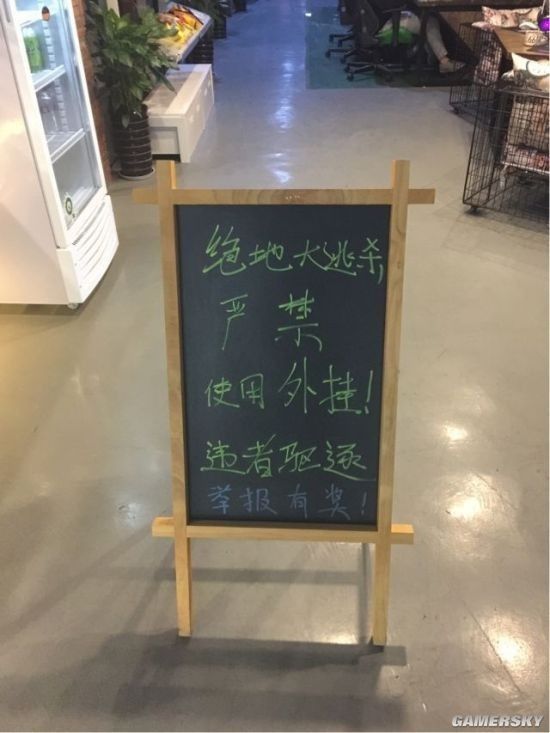 绝地大逃杀,
严禁
使用外挂!
违者驱逐
举报有奖!
GAMERSKY